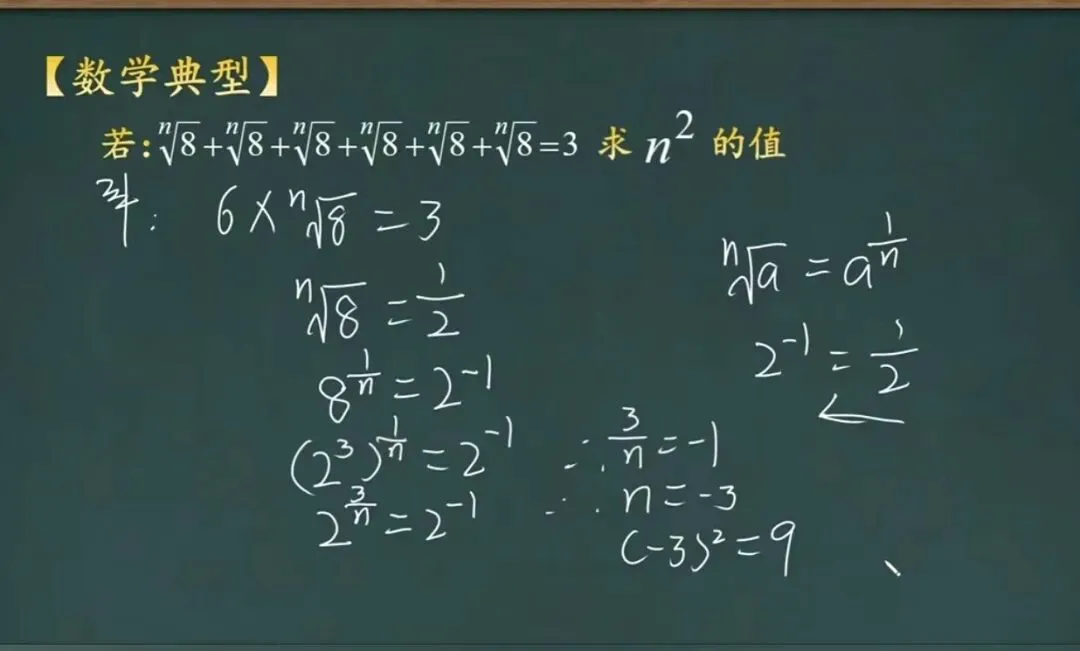 【数学典型】
若:ⁿ√8+ⁿ√8+ⁿ√8+ⁿ√8+ⁿ√8+ⁿ√8=3 求 n² 的值
解: 6×ⁿ√8=3
ⁿ√8=1/2
8^(1/n)=2^-1
(2³)^(1/n)=2^-1
2^(3/n)=2^-1
ⁿ√a=a^(1/n)
2^-1=1/2
∴ 3/n=-1
∴ n=-3
(-3)²=9